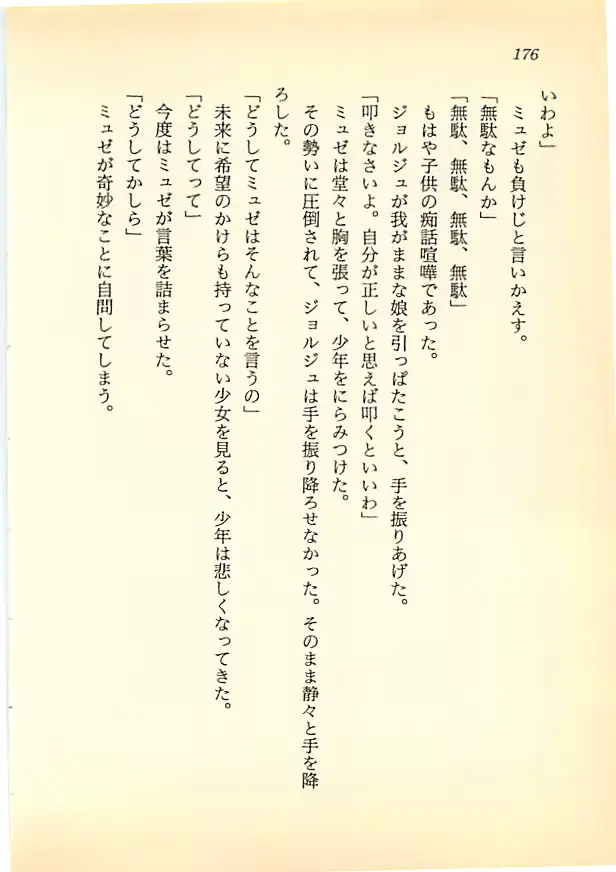 176
いわよ」
　ミュゼも負けじと言いかえす。
「無駄なもんか」
「無駄、無駄、無駄、無駄」
　もはや子供の痴話喧嘩であった。
　ジョルジュが我がままな娘を引っぱたこうと、手を振りあげた。
「叩きなさいよ。自分が正しいと思えば叩くといいわ」
　ミュゼは堂々と胸を張って、少年をにらみつけた。
　その勢いに圧倒されて、ジョルジュは手を振り降ろせなかった。そのまま静々と手を降
ろした。
「どうしてミュゼはそんなことを言うの」
　未来に希望のかけらも持っていない少女を見ると、少年は悲しくなってきた。
「どうしてって」
　今度はミュゼが言葉を詰まらせた。
「どうしてかしら」
　ミュゼが奇妙なことに自問してしまう。